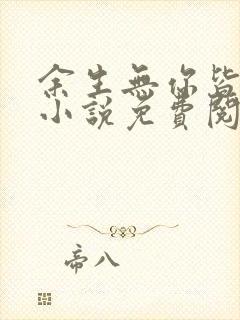 余生無你皆
小說免費閱
帝八